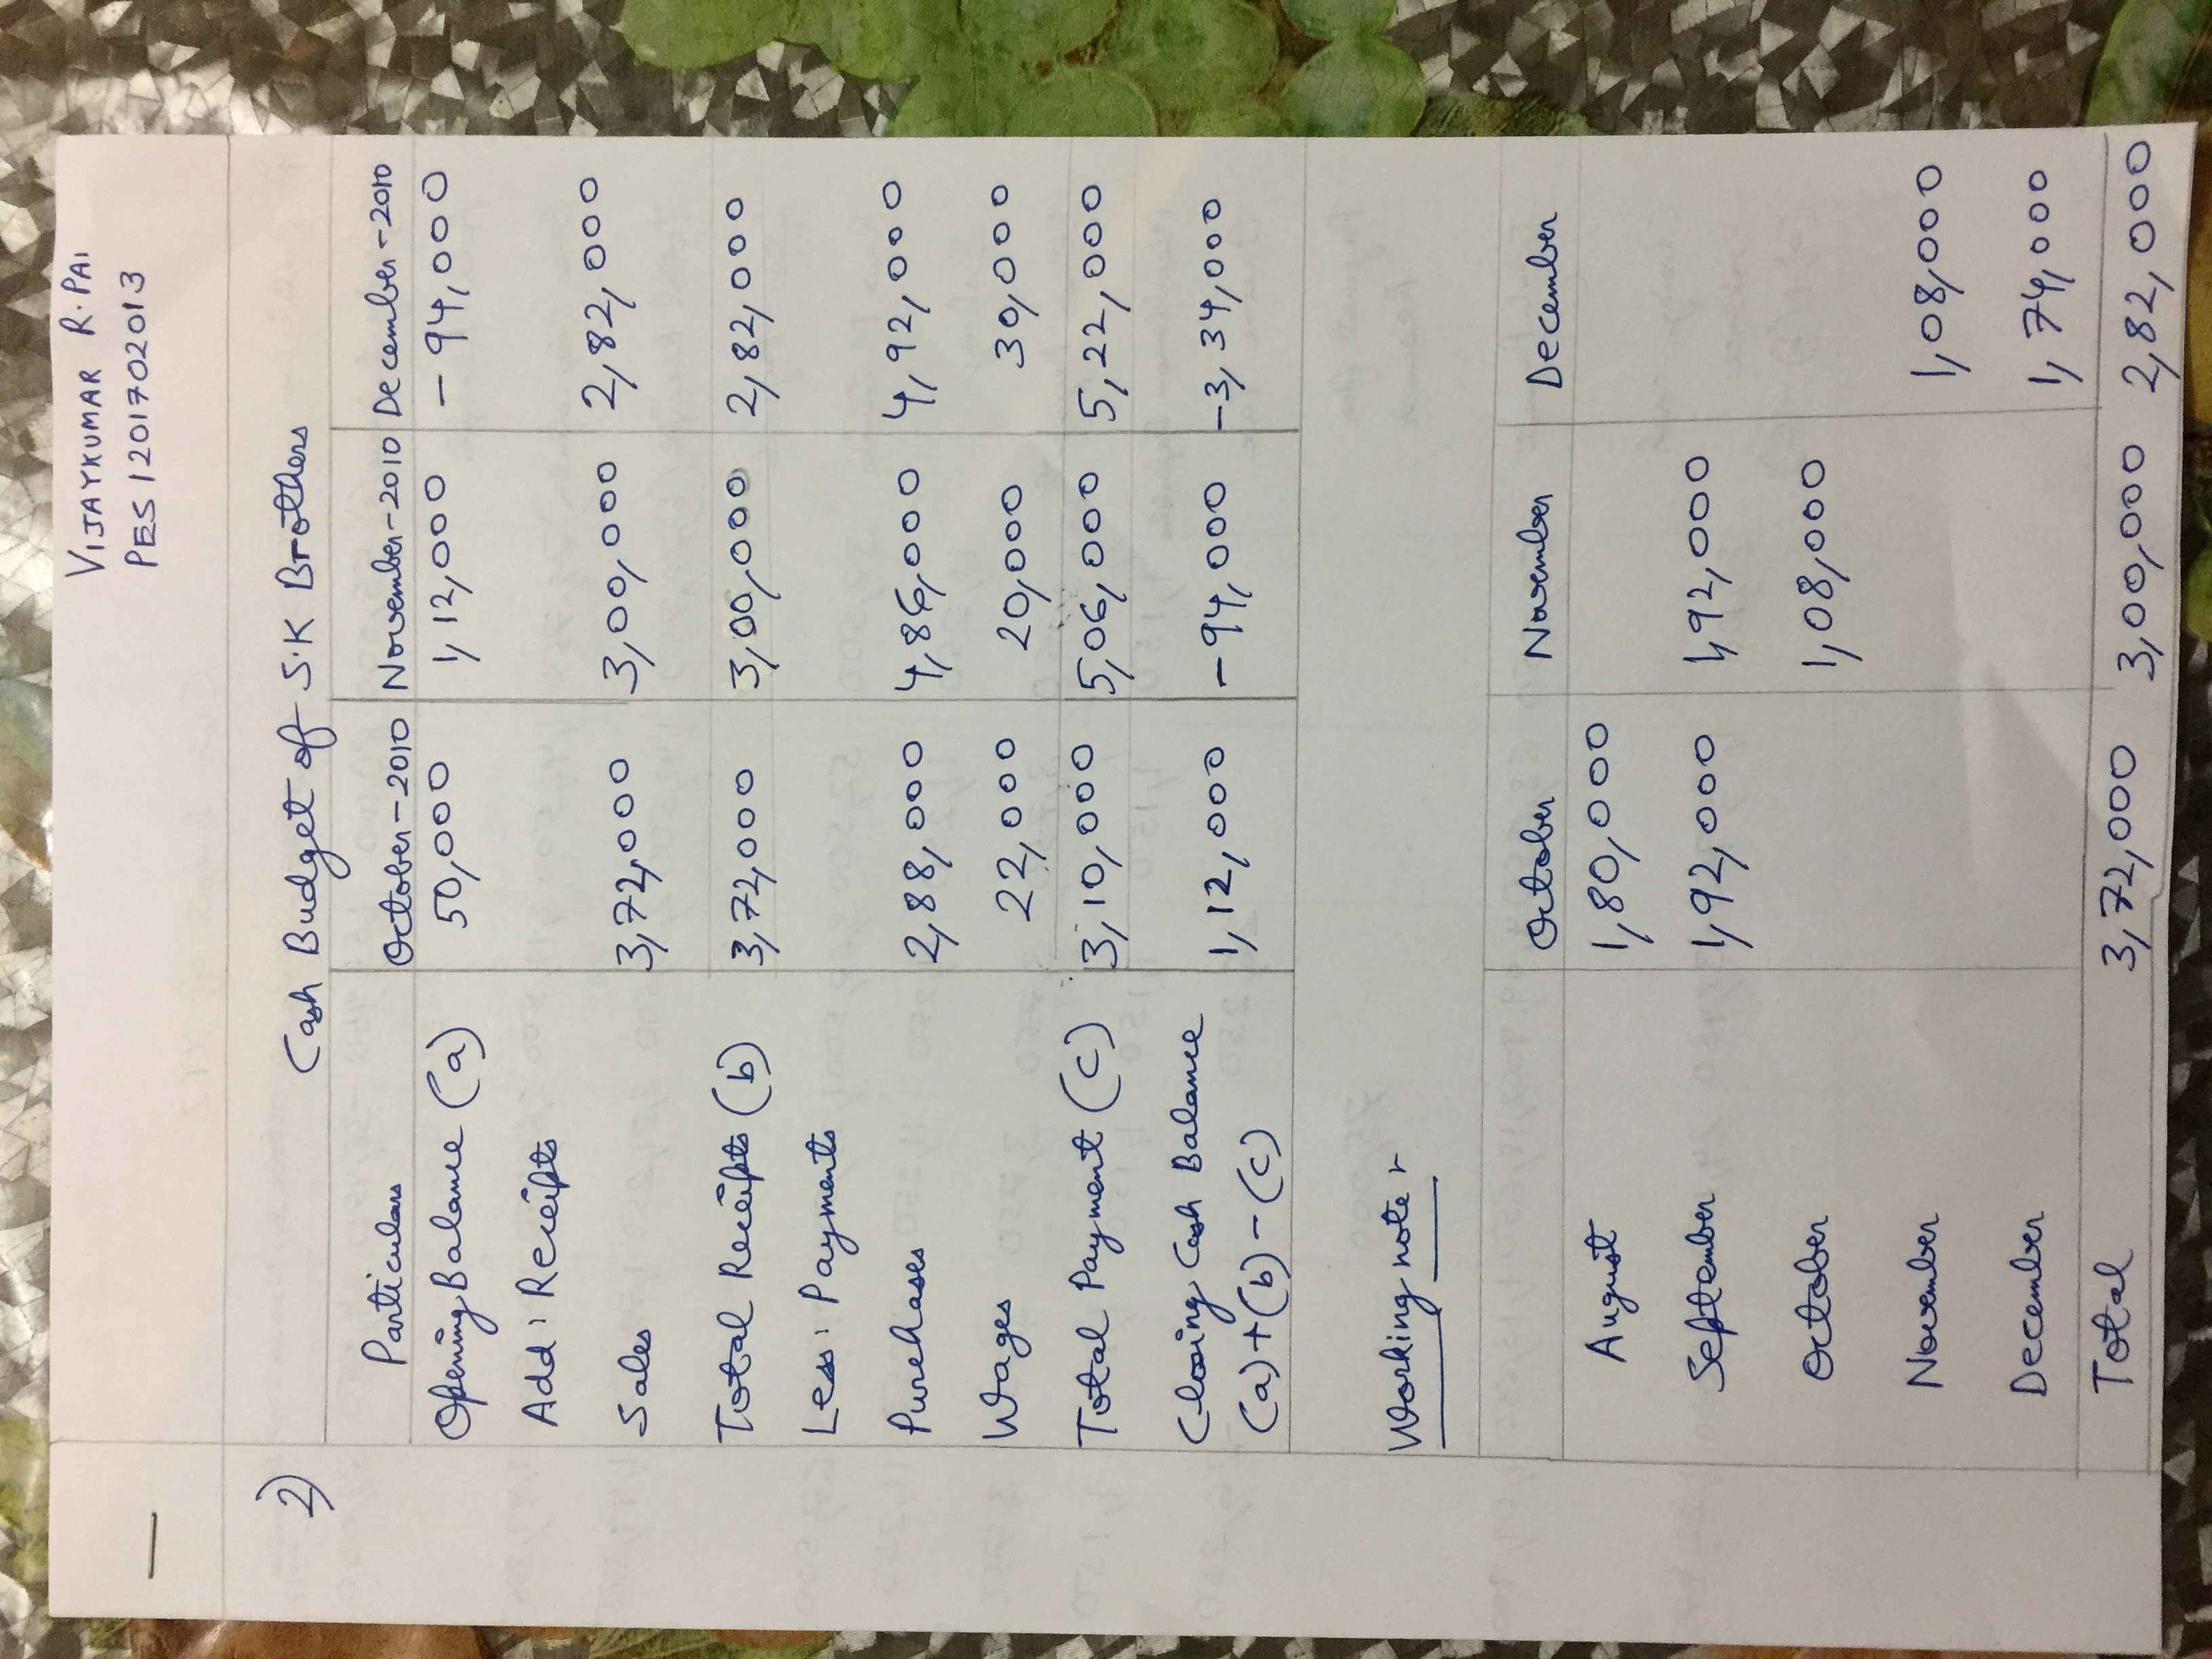 VIJAYKUMAR R. PAI
PES1201702013
2) Cash Budget of S.K Brothers
Particulars October-2010 November-2010 December-2010
Opening Balance (a) 50,000 1,12,000 -94,000
Add: Receipts
Sales 3,72,000 3,00,000 2,82,000
Total Receipts (b) 3,72,000 3,00,000 2,82,000
Less: Payments
Purchases 2,88,000 4,86,000 4,92,000
Wages 22,000 20,000 30,000
Total Payment (c) 3,10,000 5,06,000 5,22,000
Closing Cash Balance
(a)+(b)-(c) 1,12,000 -94,000 -3,34,000
Working note :-
October November December
August 1,80,000
September 1,92,000 1,92,000
October 1,08,000
November 1,08,000
December 1,74,000
Total 3,72,000 3,00,000 2,82,000